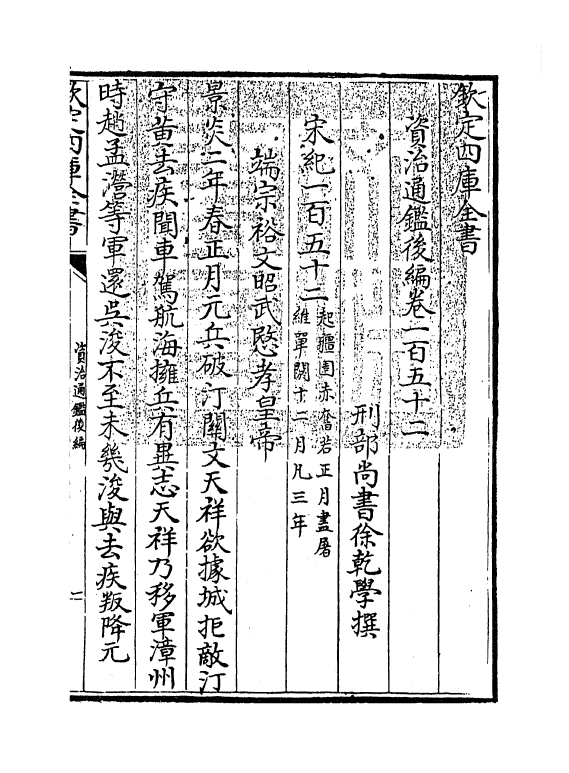 欽定四庫全書
資治通鑑後編卷一百五十二
刑部尚書徐乾學撰
宋紀一百五十二起疆圉赤奮若正月盡屠
維單閼十二月凡三年
端宗裕文昭武愍孝皇帝
景炎二年春正月元兵破汀關文天祥欲據城拒敵汀
守黄去疾聞車駕航海擁兵有異志天祥乃移軍漳州
時趙孟濳等軍還吳浚不至未幾浚與去疾叛降元
欽定四庫全書
資治通鑑後編